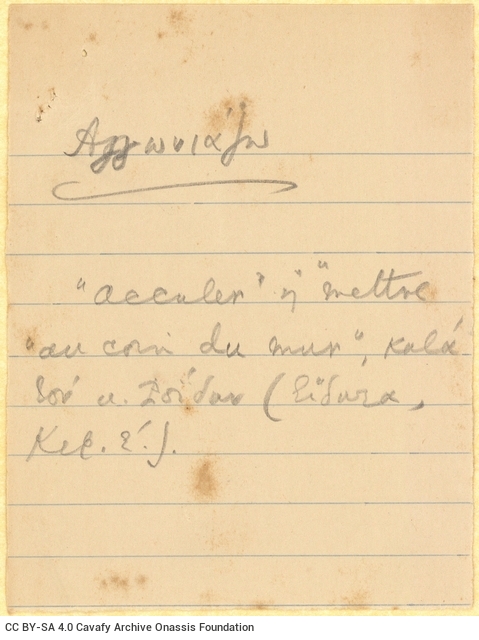 Αγγωνιάζω
"acculer" ή "mettre
"au coin du mur", κατά
τον κ. Ροΐδην (Είδωλα,
Κεφ. Ε΄.).
CC BY-SA 4.0 Cavafy Archive Onassis Foundation